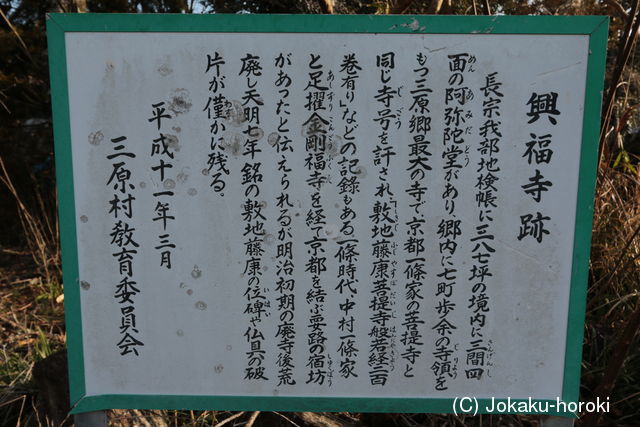 興福寺跡
長宗我部地検帳に三八七坪の境内に三間四
面の阿弥陀堂があり、郷内に七町歩余の寺領を
もつ三原郷最大の寺で、京都一條家の菩提寺と
同じ寺号を許され敷地藤康菩提寺「般若経二百
巻有り」などの記録もある。一條時代、中村一條家
と足摺金剛福寺を経て京都を結ぶ要路の宿坊
があったと伝えられるが明治初期の廃寺後荒
廃し天明七年銘の敷地藤康の位碑や仏具の破
片が僅かに残る。
平成十一年三月
三原村教育委員会
(C) Jokaku-horoki